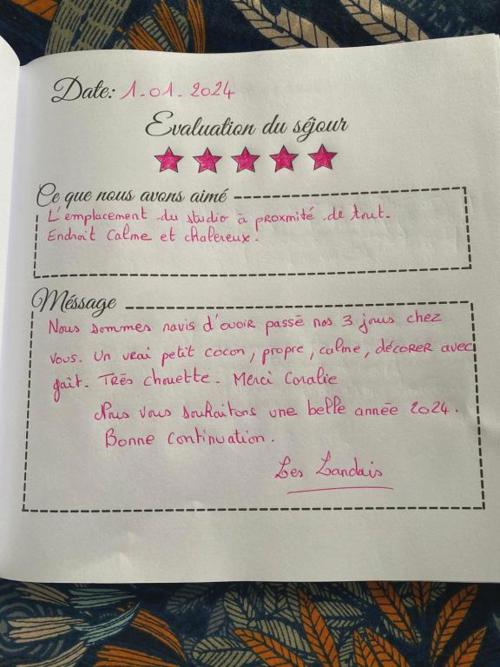 Date: 1.01.2024
Evaluation du séjour
Ce que nous avons aimé
L'emplacement du studio à proxmité de tout.
Endroit Calme et chalereux.
Méssage
Nous sommes ravis d'avoir passé nos 3 jours chez
vous. Un vrai petit cocon, propre, calme, décorer avec
gait. Très chouette. Merci Coralie
Nous vous souhaitons une belle année 2024.
Bonne continuation.
Les Landais